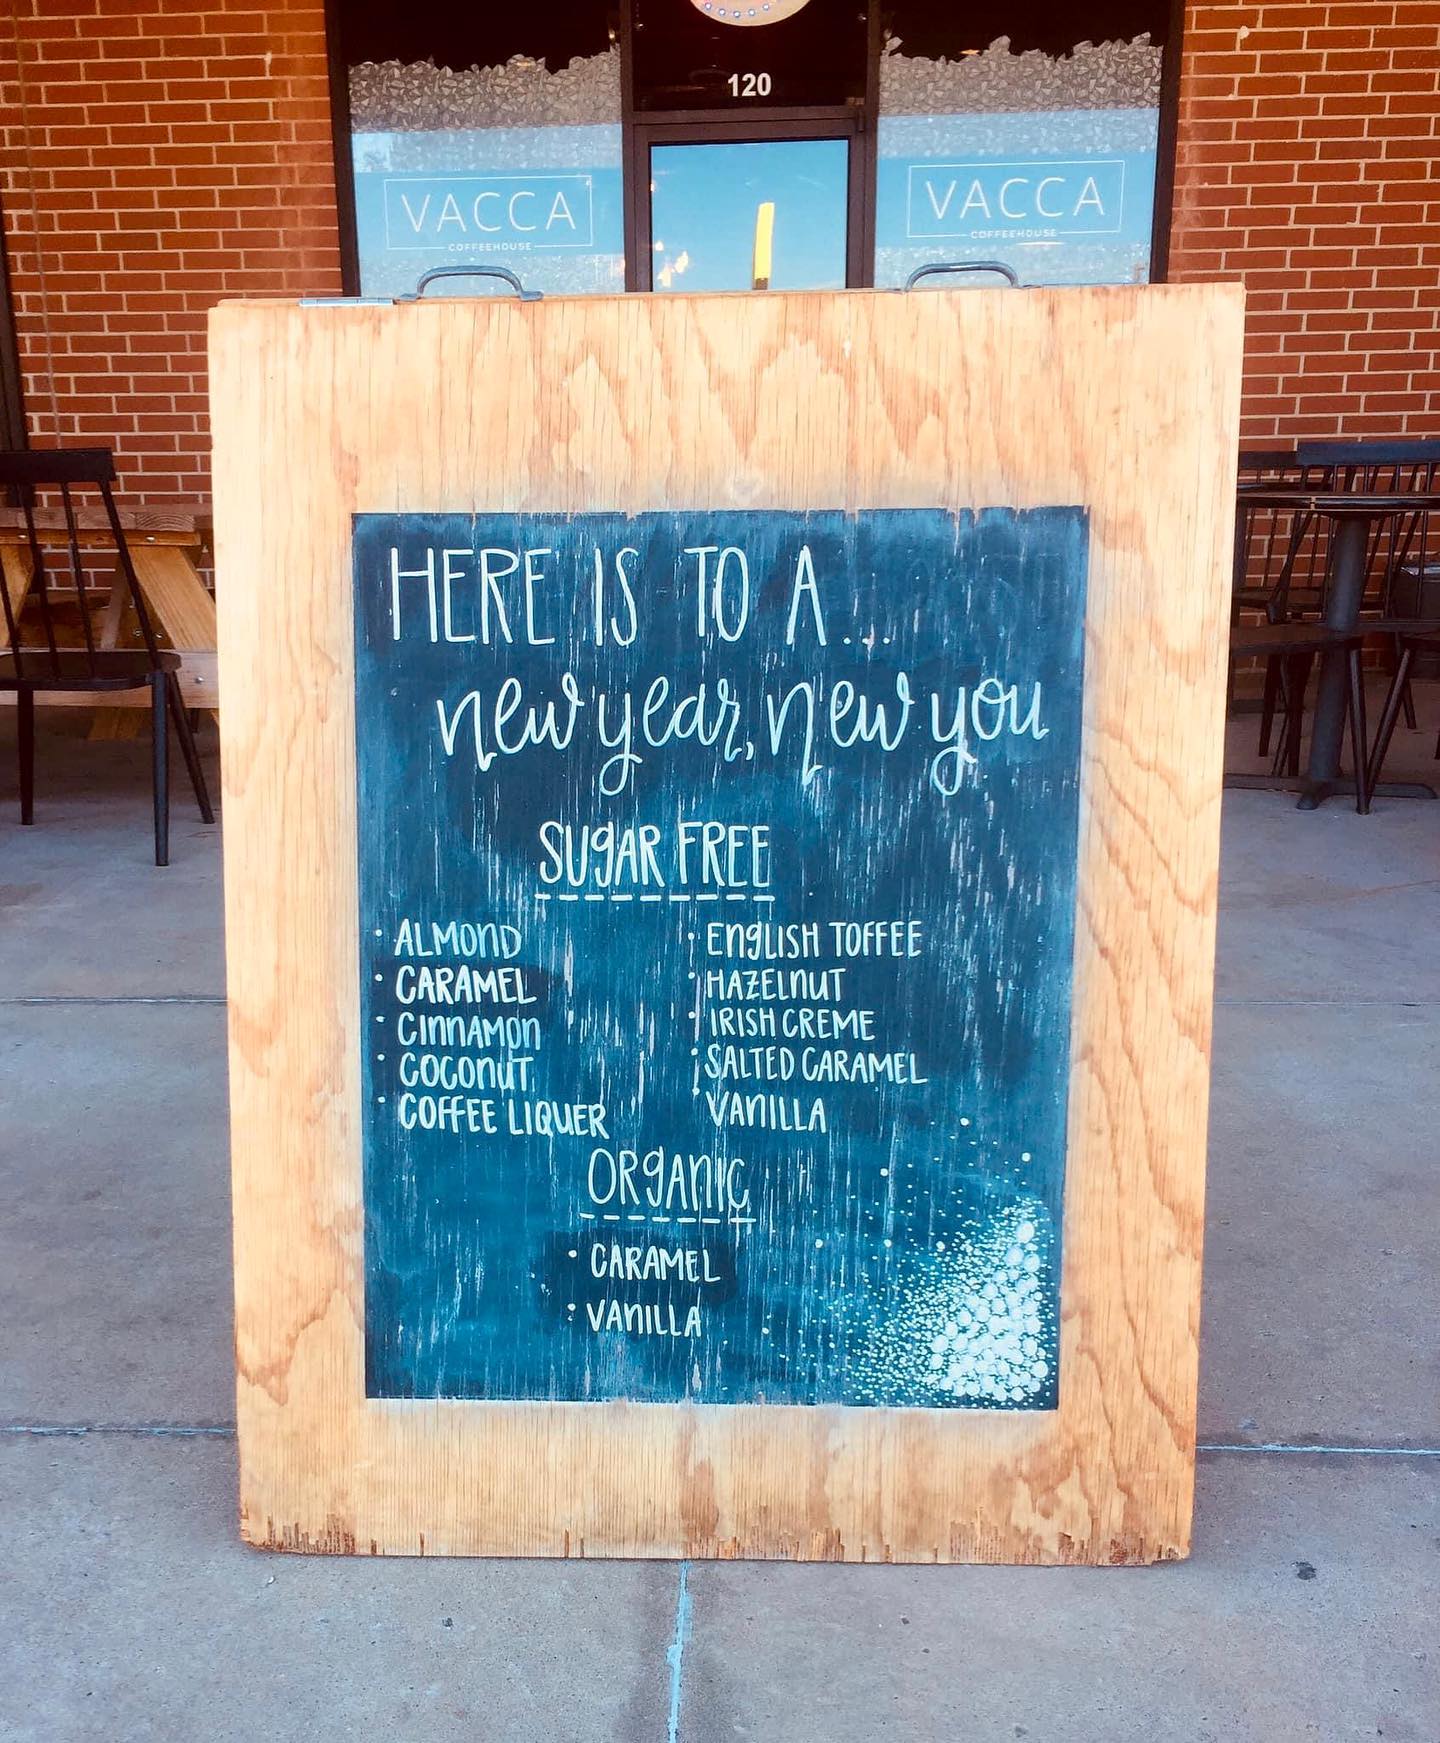 120
VACCA
COFFEEHOUSE
VACCA
COFFEEHOUSE
HERE IS TO A...
new year, new you
SUgAR FREE
• ALMOnD
• CARAMEL
• CinnAMOn
• COCOnUT
• COFFEE LIQUER
• EngLISH TOFFEE
• HAZELnUT
• IRISH CREME
• SALTED CARAMEL
• VAnILLA
ORgAnIC
• CARAMEL
• VAnILLA